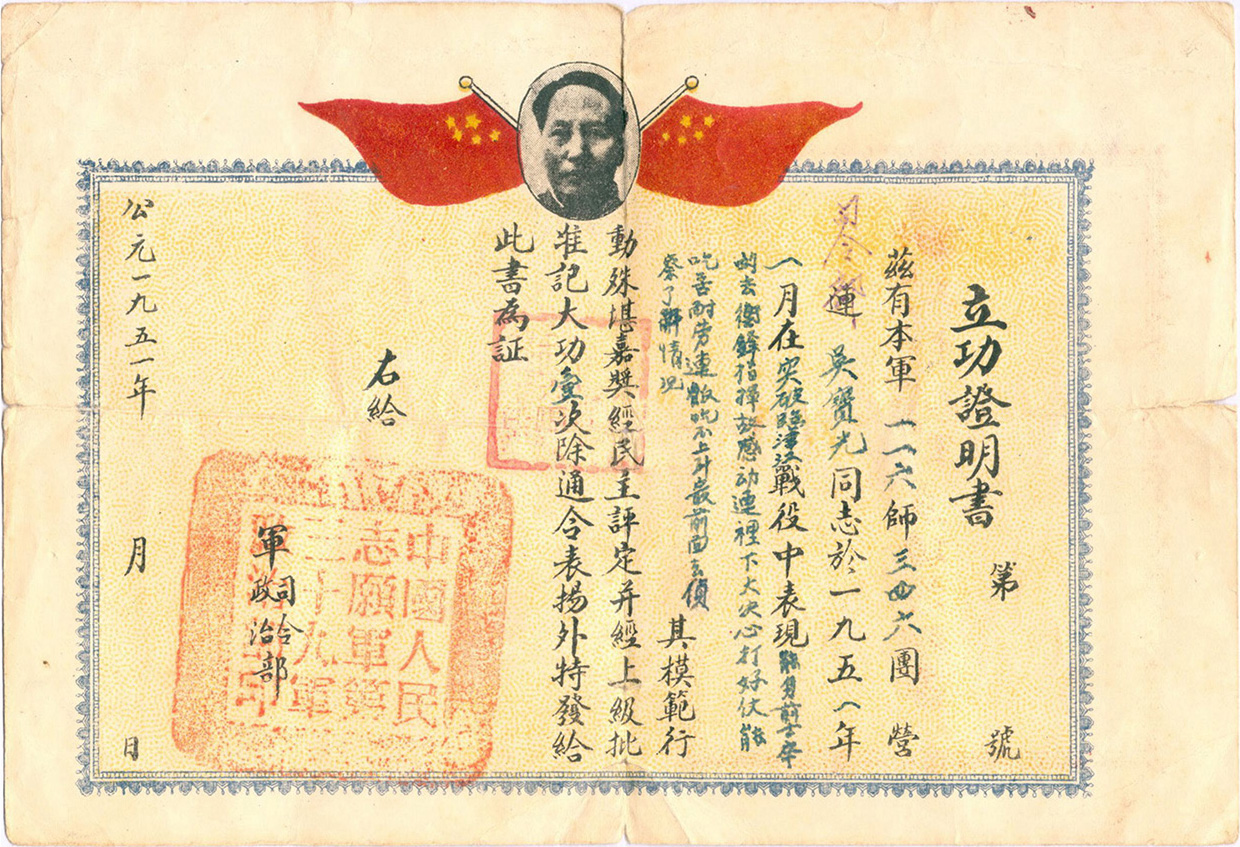 立功證明書
第 號
茲有本軍一一六師三四六團 營
連吳寶光同志於一九五一年
一月在突破臨津江戰役中表現能身先士卒
去衝鋒指揮故感动連裡下大决心打好仗能
吃苦耐劳連飯吃不上針最前面去偵
察了解情况
其模範行
動殊堪嘉奬經民主評定并經上級批
准記大功壹次除通令表揚外特發給
此書為証
右給
軍司令
政治部
中國人民
志願軍第
三十九軍
公元一九五一年 月 日